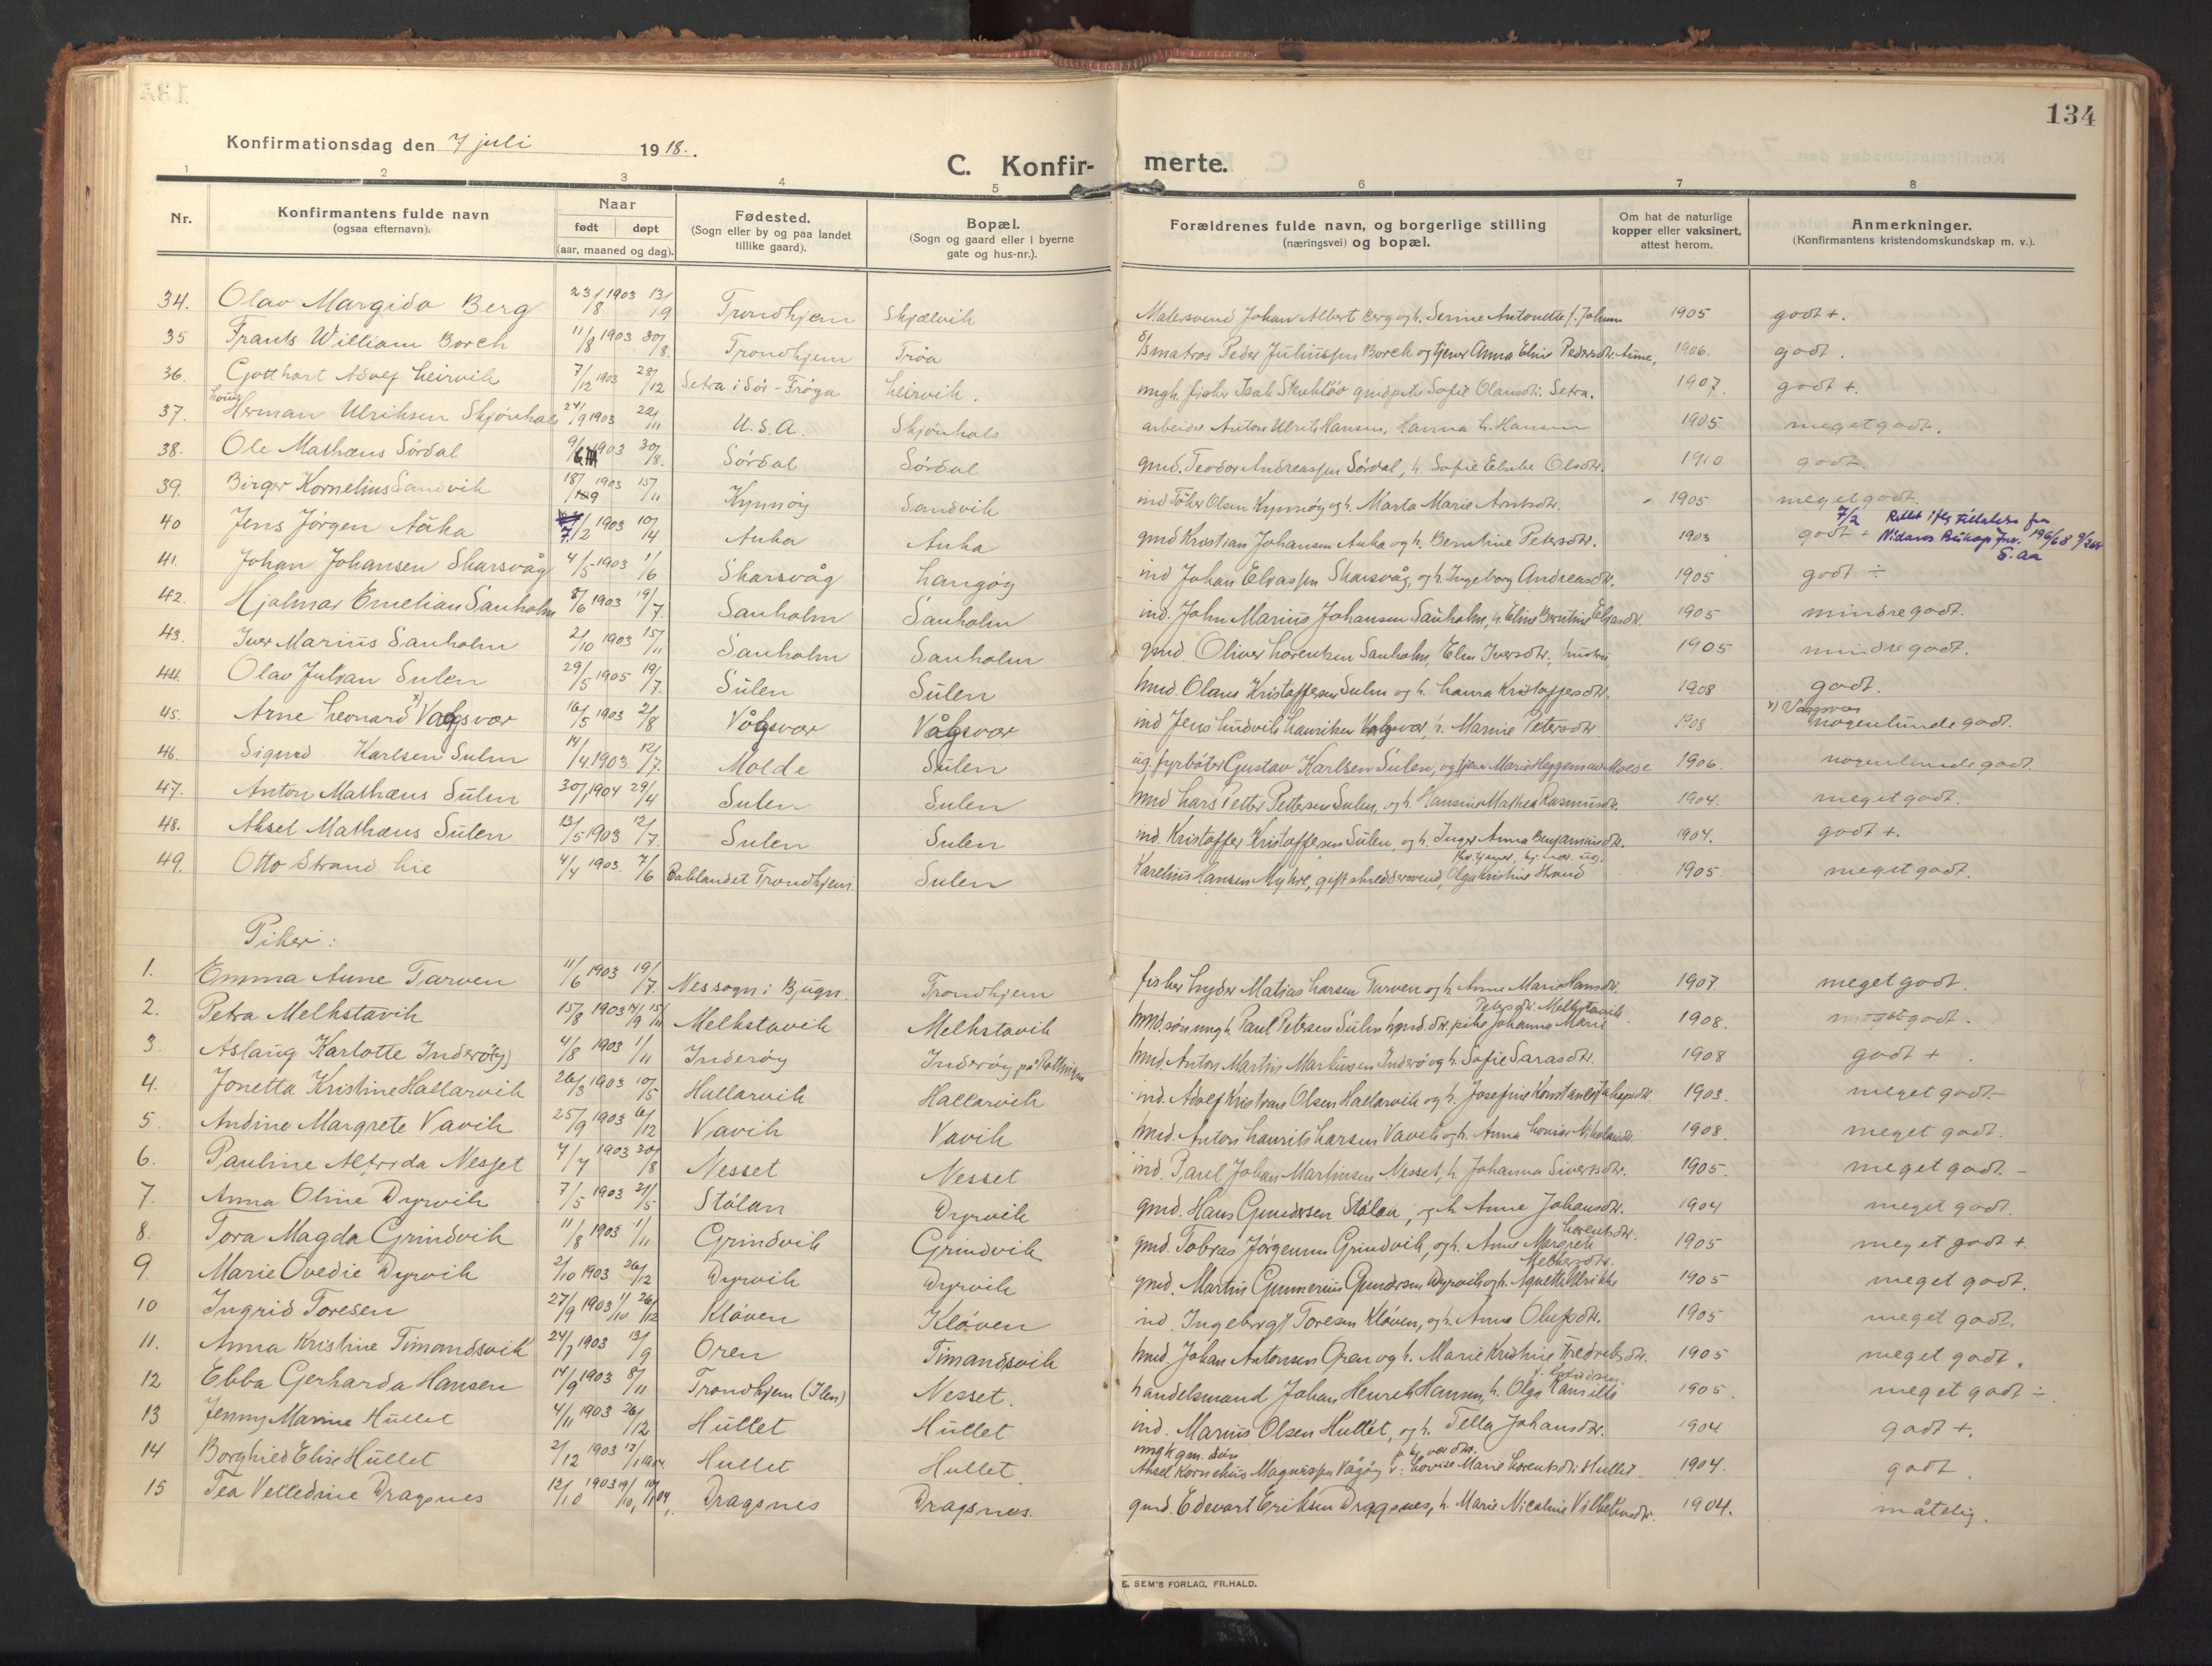 134
Konfirmationsdag den 7 juli 1918.
C. Konfir- merte.
1 2 3 4 5 6 7 8
Nr.
Konfirmantens fulde navn
(ogsaa efternavn).
Naar
født døpt
(aar, maaned og dag).
Fødested.
(Sogn eller by og paa landet
tillike gaard).
Bopæl.
(Sogn og gaard eller i byerne
gate og hus-nr.).
Forældrenes fulde navn, og borgerlige stilling
(næringsvei) og bopæl.
Om hat de naturlige
kopper eller vaksinert,
attest herom.
Anmerkninger.
(Konfirmantens kristendomskundskap m. v.).
34. Olav Margido Berg 23/8 1903 13/9 Trondhjem Skjælvik Malersvend Johan Albert Berg og h. Serine Antonette f. 1905 godt +.
35 Frants William Borch 11/8 1903 30/8. Trondhjem Trøa matros Peder Juliussen Borch og tjener Anna Eline Pedersdtr. 1906. godt.
36. Gotthart Adolf Leirvik 7/12 1903 28/12 Setra i Sør-Frøya Leirvik. ungk. fisker Isak gmdpike Sofie Olausdtr. Setra. 1907. godt +.
37. Herman Ulriksen Skjønhals 24/9 1903 22/11 U.S.A. Skjønhals arbeider Anton Ulrik Hansen, Hanna h. Hansen 1905 meget godt.
38. Ole Mathæus Sørdal 9/6 1903 30/8. Sørdal Sørdal gmd. Teodor Andreassen Sørdal, h. Sofie Olsdtr. 1910 godt.
39. Birger Kornelius Sandvik 18/9 1903 15/11 Kynnøy Sandvik ind Olsen Kynnøy og h. Marta Marie Arntsdtr. 1905 meget godt.
40 Jens Jörgen Auka 7/2 1903 10/4 Auka Auka gmd Kristian Johansen Auka og h. Berntine Petersdtr. 1903 godt + 7/2 Rettet iflg tillatelse fra
Nidaros Biskop
S. Aa
41. Johan Johansen Skarsvåg 4/5 1903 1/6 Skarsvåg Langøy ind Johan Eliassen Skarsvåg, og h. Ingeborg Andreasdtr. 1905 godt ÷
42. Hjalmar Emelian Sanholm 8/6 1903 19/7. Sanholm Sanholm ind. John Marius Johansen Sanholm, h. Eline Berntine Eliasdtr. 1905 mindre godt.
43. Iver Marius Sanholm 2/10 1903 15/11 Sanholm Sanholm gmd. Oliver Lorentsen Sanholm, Elen Iversdtr., hustru 1905 mindre godt.
44. Olav Julian Sulen 29/5 1905 19/7. Sulen Sulen hmd. Olaus Kristoffersen Sulen og h. Laura Kristoffersdtr. 1908 godt.
45. Arne Leonard x) Vågsvær 16/5 1903 2/8 Vågsvær Vågsvær ind Jens Ludvik Lauriksen Vågsvær, h. Marine Petersdtr. 1908 x) Vågsvær
nogenlunde godt.
46. Sigurd Karlsen Sulen 14/4 1903 12/7. Molde Sulen ug. fyrbøter Gustav Karlsen Sulen, og tjener Marie Heggemsnes Molde 1906. nogenlunde godt.
47. Anton Mathæus Sulen 30/1 1904 29/4 Sulen Sulen hmd Lars Petter Pettersen Sulen, og h. Hansine Mathea Rasmusdtr. 1904. meget godt.
48. Aksel Mathæus Sulen 13/5 1903 12/7. Sulen Sulen ind. Kristoffer Kristoffersen Sulen, og h. Inger Anna Benjaminsdtr. 1904. godt +.
49. Otto Strand Lie 4/4 1903. 7/6 Baklandet Trondhjem. Sulen Karelius Hansen Myhre, gift skreddersvend, Olga Kristine Strand 1905. meget godt.
Piker:
1. Emma Anne Tarven 11/6 1903 19/7. Nes sogn i Bjugn. Trondhjem fisker Lyder Matias Larsen Tarven og h. Anne Marie Hansdtr. 1907. meget godt.
2. Petra Melkstavik 15/8 1903 14/9 15/11 Melkstavik Melkstavik hmd. søn ungk. Paul Petersen Sulen hmd. dtr. pike Johanna Marie Petersdtr. Melkstavik. 1908. meget godt.
3. Aslaug Karlotte Inderøy 4/8 1903 1/11 Inderøy Inderøy på hmd. Anton Martin Markussen Inderø og h. Sofie Sarasdtr. 1908 godt +.
4. Jonetta Kristine Hallarvik 26/3 1903 10/5 Hallarvik Hallarvik ind. Adolf Kristian Olsen Hallarvik og h. Josefine Konstanse Jakopsdtr. 1903. meget godt-
5. Andine Margrete Vavik 25/9 1903 6/12 Vavik Vavik hmd. Anton Laurits Larsen Vavik og h. Anna Lovise Nikolaisdtr. 1908. meget godt.
6. Pauline Alfrida Nesset 4/7 1903 30/8 Nesset Nesset ind. Paul Johan Martinsen Nesset, h. Johanna Sivertsdtr. 1905. meget godt. -
7. Anna Oline Dyrvik 7/5 1903 21/5 Stølan Dyrvik gmd. Hans Gundersen Stølan, og h. Anne Johansdtr. 1904 meget godt.
8. Tora Magda Grindvik 11/8 1903 1/11 Grindvik Grindvik gmd. Tobias Jørgensen Grindvik, og h. Anne Margrete Lorentsdtr. 1905 meget godt +.
9. Marie Ovedie Dyrvik 2/10 1903 26/12 Dyrvik Dyrvik gmd. Martin Gunnerius Gundersen Dyrvik og h. Agnette Ulrikke 1905 meget godt.
10 Ingrid Toresen 27/9 1903 11/10 26/12 Kløven Kløven ind. Ingebrigt Toresen Kløven, og h. Anna Olufsdtr. 1905 meget godt.
11. Anna Kristine Timandsvik 24/7 1903 13/9 Oren Timandsvik hmd. Johan Antonsen Oren og h. Marie Kristine Fredriksdtr. 1905 meget godt.
12 Ebba Gerharda Hansen 14/9 1903 8/11 Trondhjem (Ilen) Nesset. handelsmand Johan Henrik Hansen, h. Olga Kamilla 1905. meget godt ÷
13 Jenny Marine Hullet 4/11 1903 26/12 Hullet Hullet ind. Marius Olsen Hullet, og h. Tella Johansdtr. 1904 godt +.
14 Borghild Elise Hullet 2/12 1903 17/1 1904. Hullet Hullet ungk gm. søn
Aksel Kornelius Magnussen Vågøy Lovise Marie Lorentsdtr. Hullet. 1904. godt.
15 Tea Velledine Dragsnes 12/10 1903 19/10, 10/1 04. Dragsnes Dragsnes. gmd. Edevart Eriksen Dragsnes, h. Marie Nicoline Vilhelmsdtr. 1904. måtelig.
E. SEM'S FORLAG, FR.HALD.